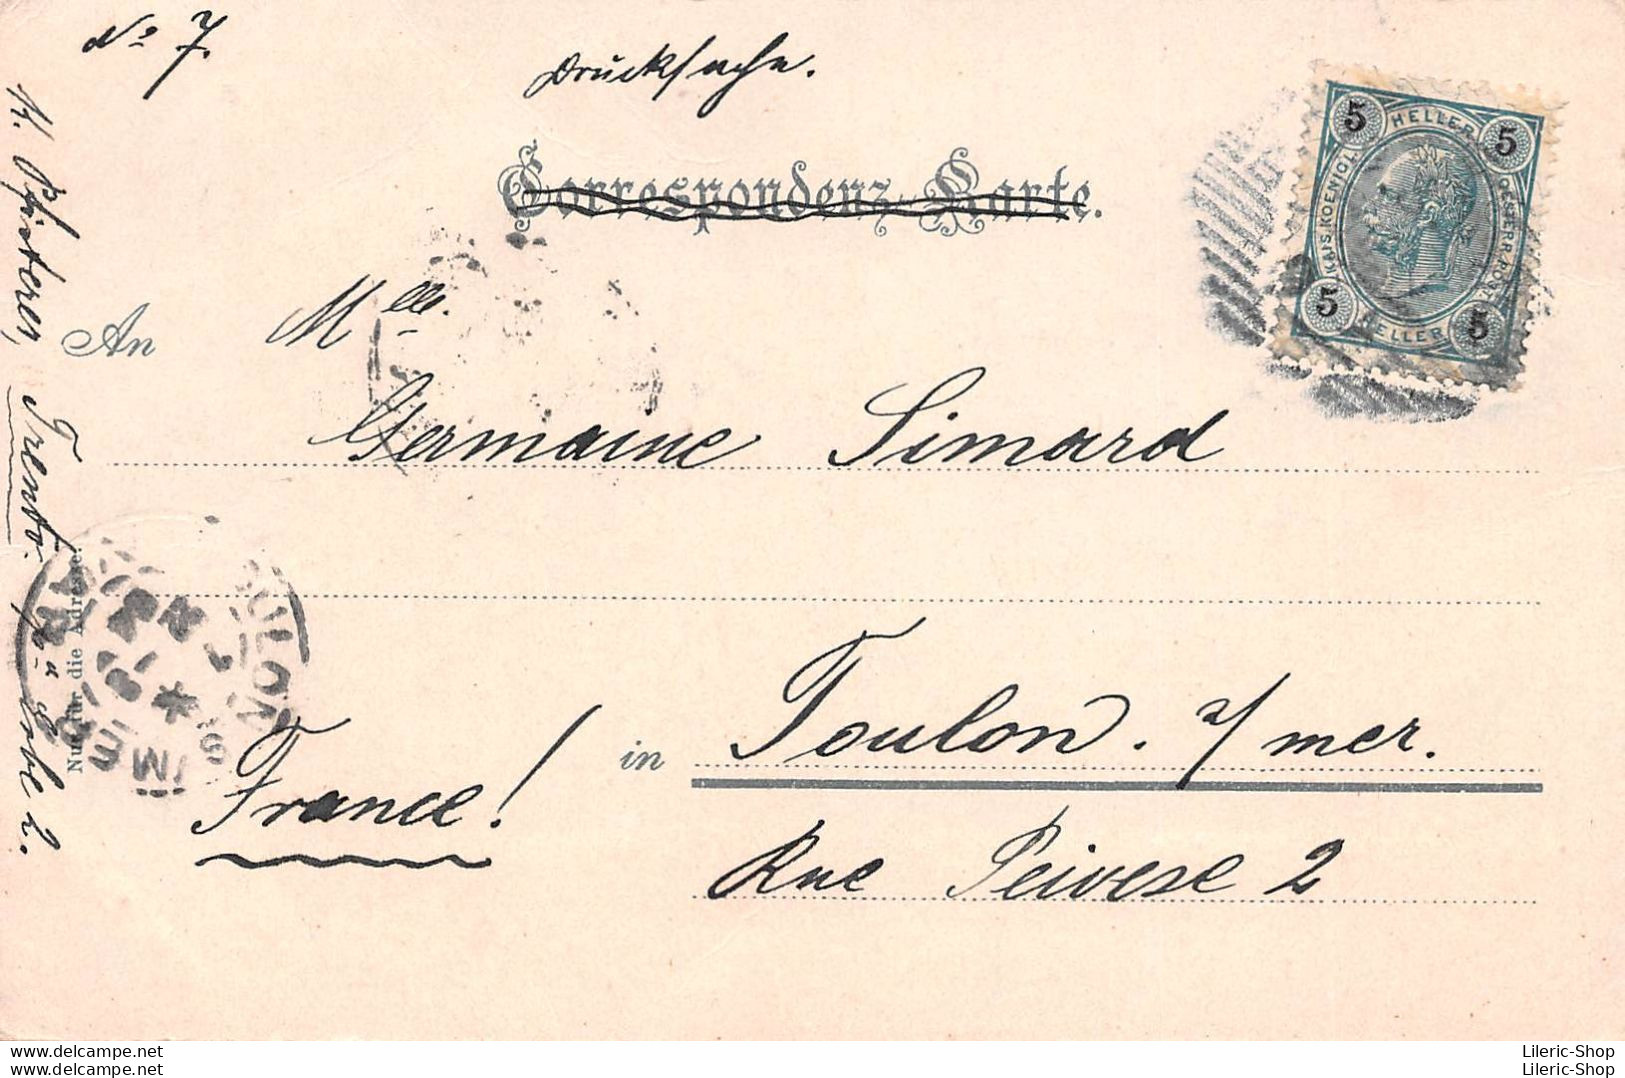 No 7.
Drucksache.
Correspondenz-Karte.
5 HELLER 5
KAIS. KOENIGL. OESTERR. POST
5 HELLER 5
An Mlle.
Germaine Simard
in Toulon. s/mer.
France!
Rue Peivese 2
Nur für die Adresse.
K. Pfisterer, Trento.
2.
TOULON
VAR
delcampe.net
Lileric-Shop
Lileric-Shop